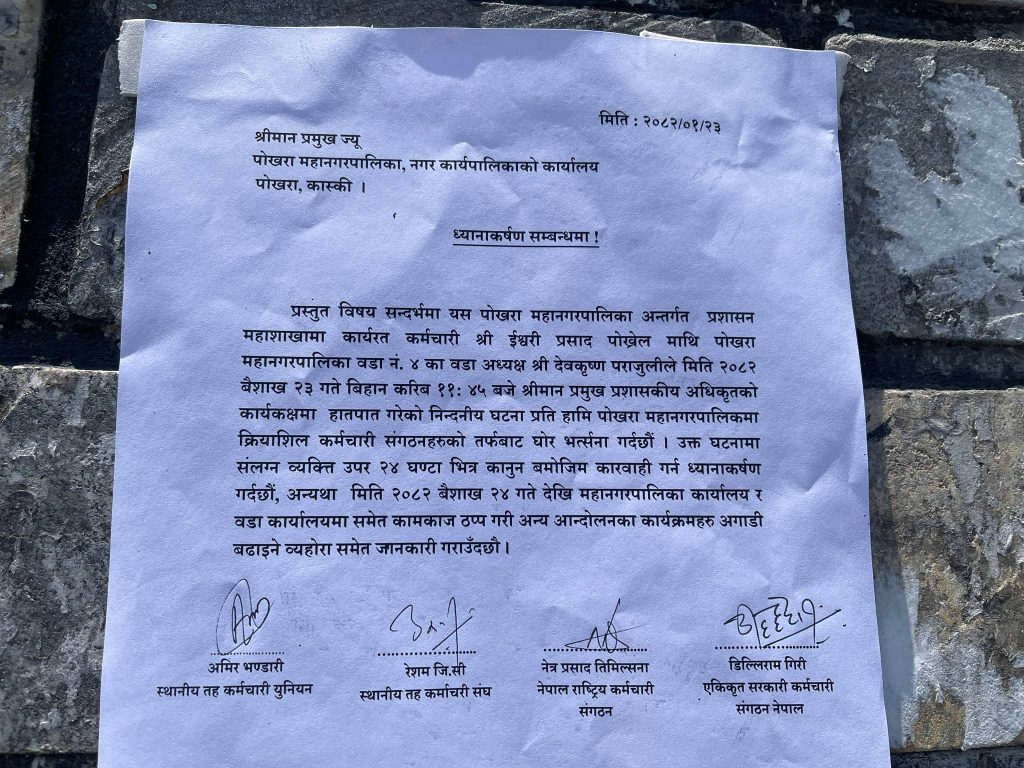 मिति : २०८२/०१/२३
श्रीमान प्रमुख ज्यू
पोखरा महानगरपालिका, नगर कार्यपालिकाको कार्यालय
पोखरा, कास्की ।
ध्यानाकर्षण सम्बन्धमा !
प्रस्तुत विषय सन्दर्भमा यस पोखरा महानगरपालिका अन्तर्गत प्रशासन
महाशाखामा कार्यरत कर्मचारी श्री ईश्वरी प्रसाद पोख्रेल माथि पोखरा
महानगरपालिका वडा नं. ४ का वडा अध्यक्ष श्री देवकृष्ण पराजुलीले मिति २०८२
बैशाख २३ गते बिहान करिब ११: ४५ बजे श्रीमान प्रमुख प्रशासकीय अधिकृतको
कार्यकक्षमा हातपात गरेको निन्दनीय घटना प्रति हामि पोखरा महानगरपालिकमा
क्रियाशिल कर्मचारी संगठनहरुको तर्फबाट घोर भर्त्सना गर्दछौं । उक्त घटनामा
संलग्न व्यक्ति उपर २४ घण्टा भित्र कानुन बमोजिम कारवाही गर्न ध्यानाकर्षण
गर्दछौं, अन्यथा मिति २०८२ बैशाख २४ गते देखि महानगरपालिका कार्यालय र
वडा कार्यालयमा समेत कामकाज ठप्प गरी अन्य आन्दोलनका कार्यक्रमहरु अगाडी
बढाइने व्यहोरा समेत जानकारी गराउँदछौ ।
अमिर भण्डारी
स्थानीय तह कर्मचारी युनियन
रेशम जि.सी
स्थानीय तह कर्माचरी संघ
नेत्र प्रसाद तिमिल्सना
नेपाल राष्ट्रिय कर्मचारी
संगठन
डिल्लिराम गिरी
एकिकृत सरकारी कर्मचारी
संगठन नेपाल